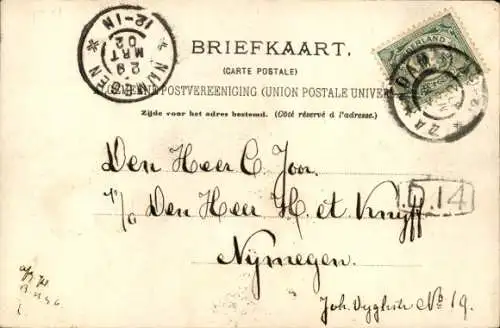 NIJMEGEN
12-1N
29
MRT
02
NEDERLAND
BRIEFKAART.
(CARTE POSTALE)
ALGEMEENE POSTVEREENIGING (UNION POSTALE UNIVER
Zijde voor het adres bestemd. (Côté réservé à l'adresse.)
Den Heer C. Joor.
p/a Den Heer H. et Knuyff
D.14
Nijmegen.
Joh. No. 19.